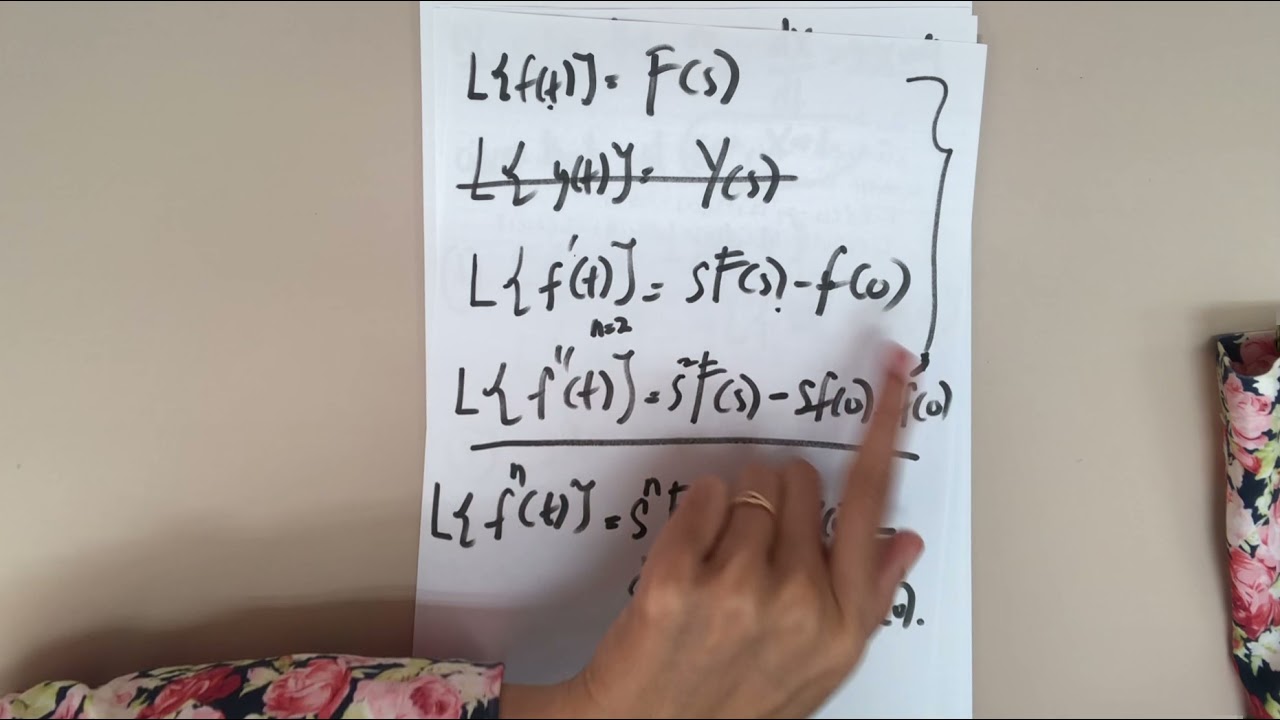 L{f(t)} = F(s)
L{ y(t)} = Y(s)
L{ f'(t)} = sF(s) - f(0)
n=2
L{ f''(t)} = s²F(s) - sf(0) f(0)
L{ fⁿ(t)} = sⁿF